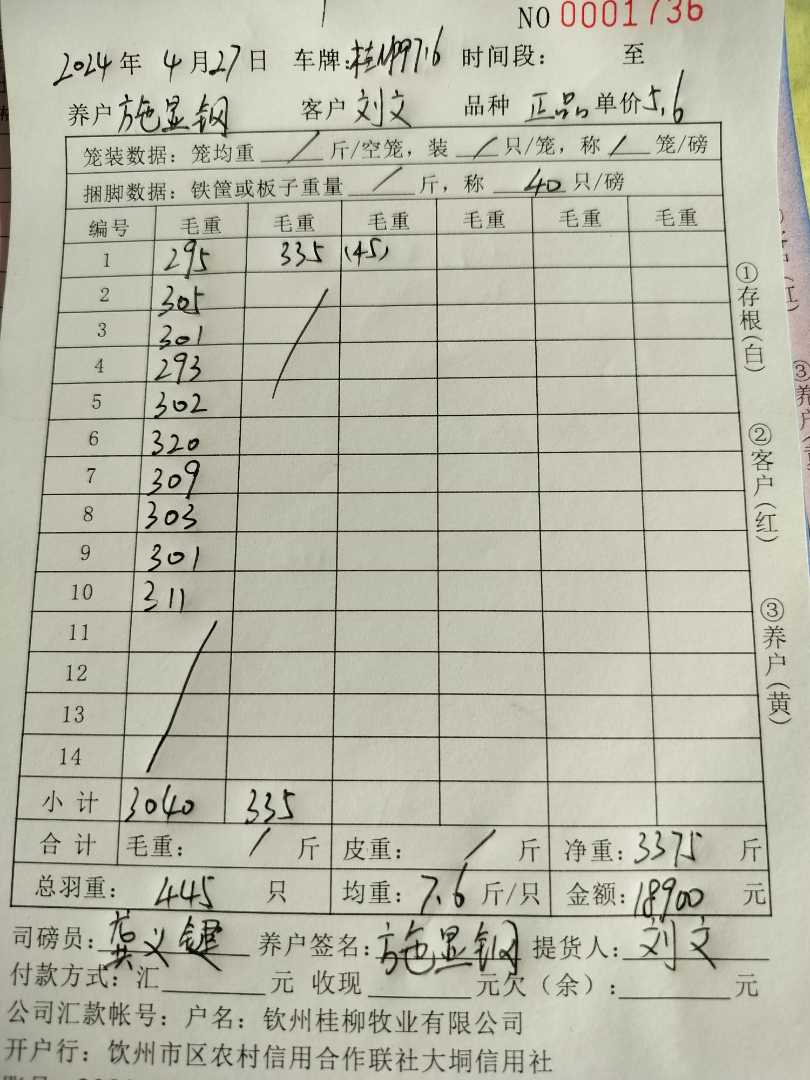 NO 0001736
2024年 4月27日 车牌:桂 997.6 时间段: 至
养户 施显钢 客户 刘文 品种 正品 单价5.6
笼装数据: 笼均重 / 斤/空笼, 装 / 只/笼, 称 / 笼/磅
捆脚数据: 铁筐或板子重量 / 斤, 称 40 只/磅
编号 毛重 毛重 毛重 毛重 毛重 毛重
1 295 335 (45)
2 305
3 301
4 293
5 302
6 320
7 309
8 303
9 301
10 311
11
12
13
14
小计 3040 335
合计 毛重: / 斤 皮重: / 斤 净重: 3375 斤
总羽重: 445 只 均重: 7.6 斤/只 金额: 18900 元
司磅员: 龚义键 养户签名: 施显钢 提货人: 刘文
付款方式: 汇 元 收现 元欠(余): 元
公司汇款帐号: 户名: 钦州桂柳牧业有限公司
开户行: 钦州市区农村信用合作联社大垌信用社
①存根(白)
②客户(红)
③养户(黄)